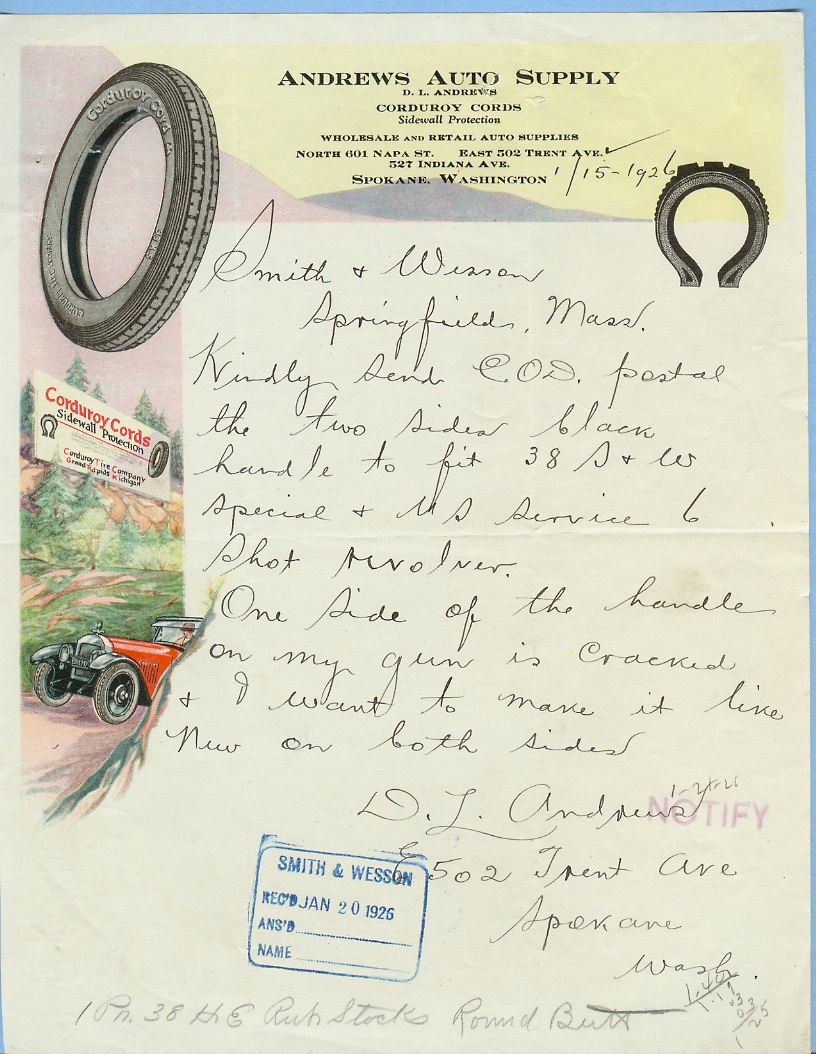 ANDREWS AUTO SUPPLY
D. L. ANDREWS
CORDUROY CORDS
Sidewall Protection
WHOLESALE AND RETAIL AUTO SUPPLIES
NORTH 601 NAPA ST. EAST 502 TRENT AVE.
527 INDIANA AVE.
SPOKANE, WASHINGTON 1/15-1926
Corduroy Cord
Smith & Wesson
Springfields, Mass.
Kindly send C.O.D. postal
the two sides black
handle to fit 38 S & W
special & U S Service 6
Shot revolver.
One side of the handle
on my gun is cracked
& I want to make it like
New on both sides
D. L. Andrews
E 502 Trent Ave
Spokane
Wash.
Corduroy Cords
Sidewall Protection
Corduroy Tire Company
Grand Rapids Michigan
NOTIFY
SMITH & WESSON
REC'D JAN 20 1926
ANS'D
NAME
1 Pr. 38 H E Rub Stocks Round Butt